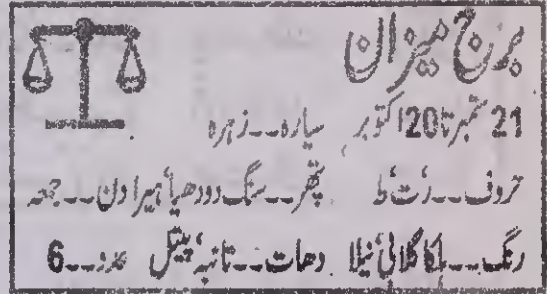 برج میزان
21 ستمبر تا 20 اکتوبر سیارہ۔۔زہرہ
حروف۔۔ر'ت'ط پتھر۔۔سنگ دودھیا'ہیرا دن۔۔جمعہ
رنگ۔۔ہلکا گلابی'نیلا دھات۔۔تانبہ'پیتل عدد۔۔6